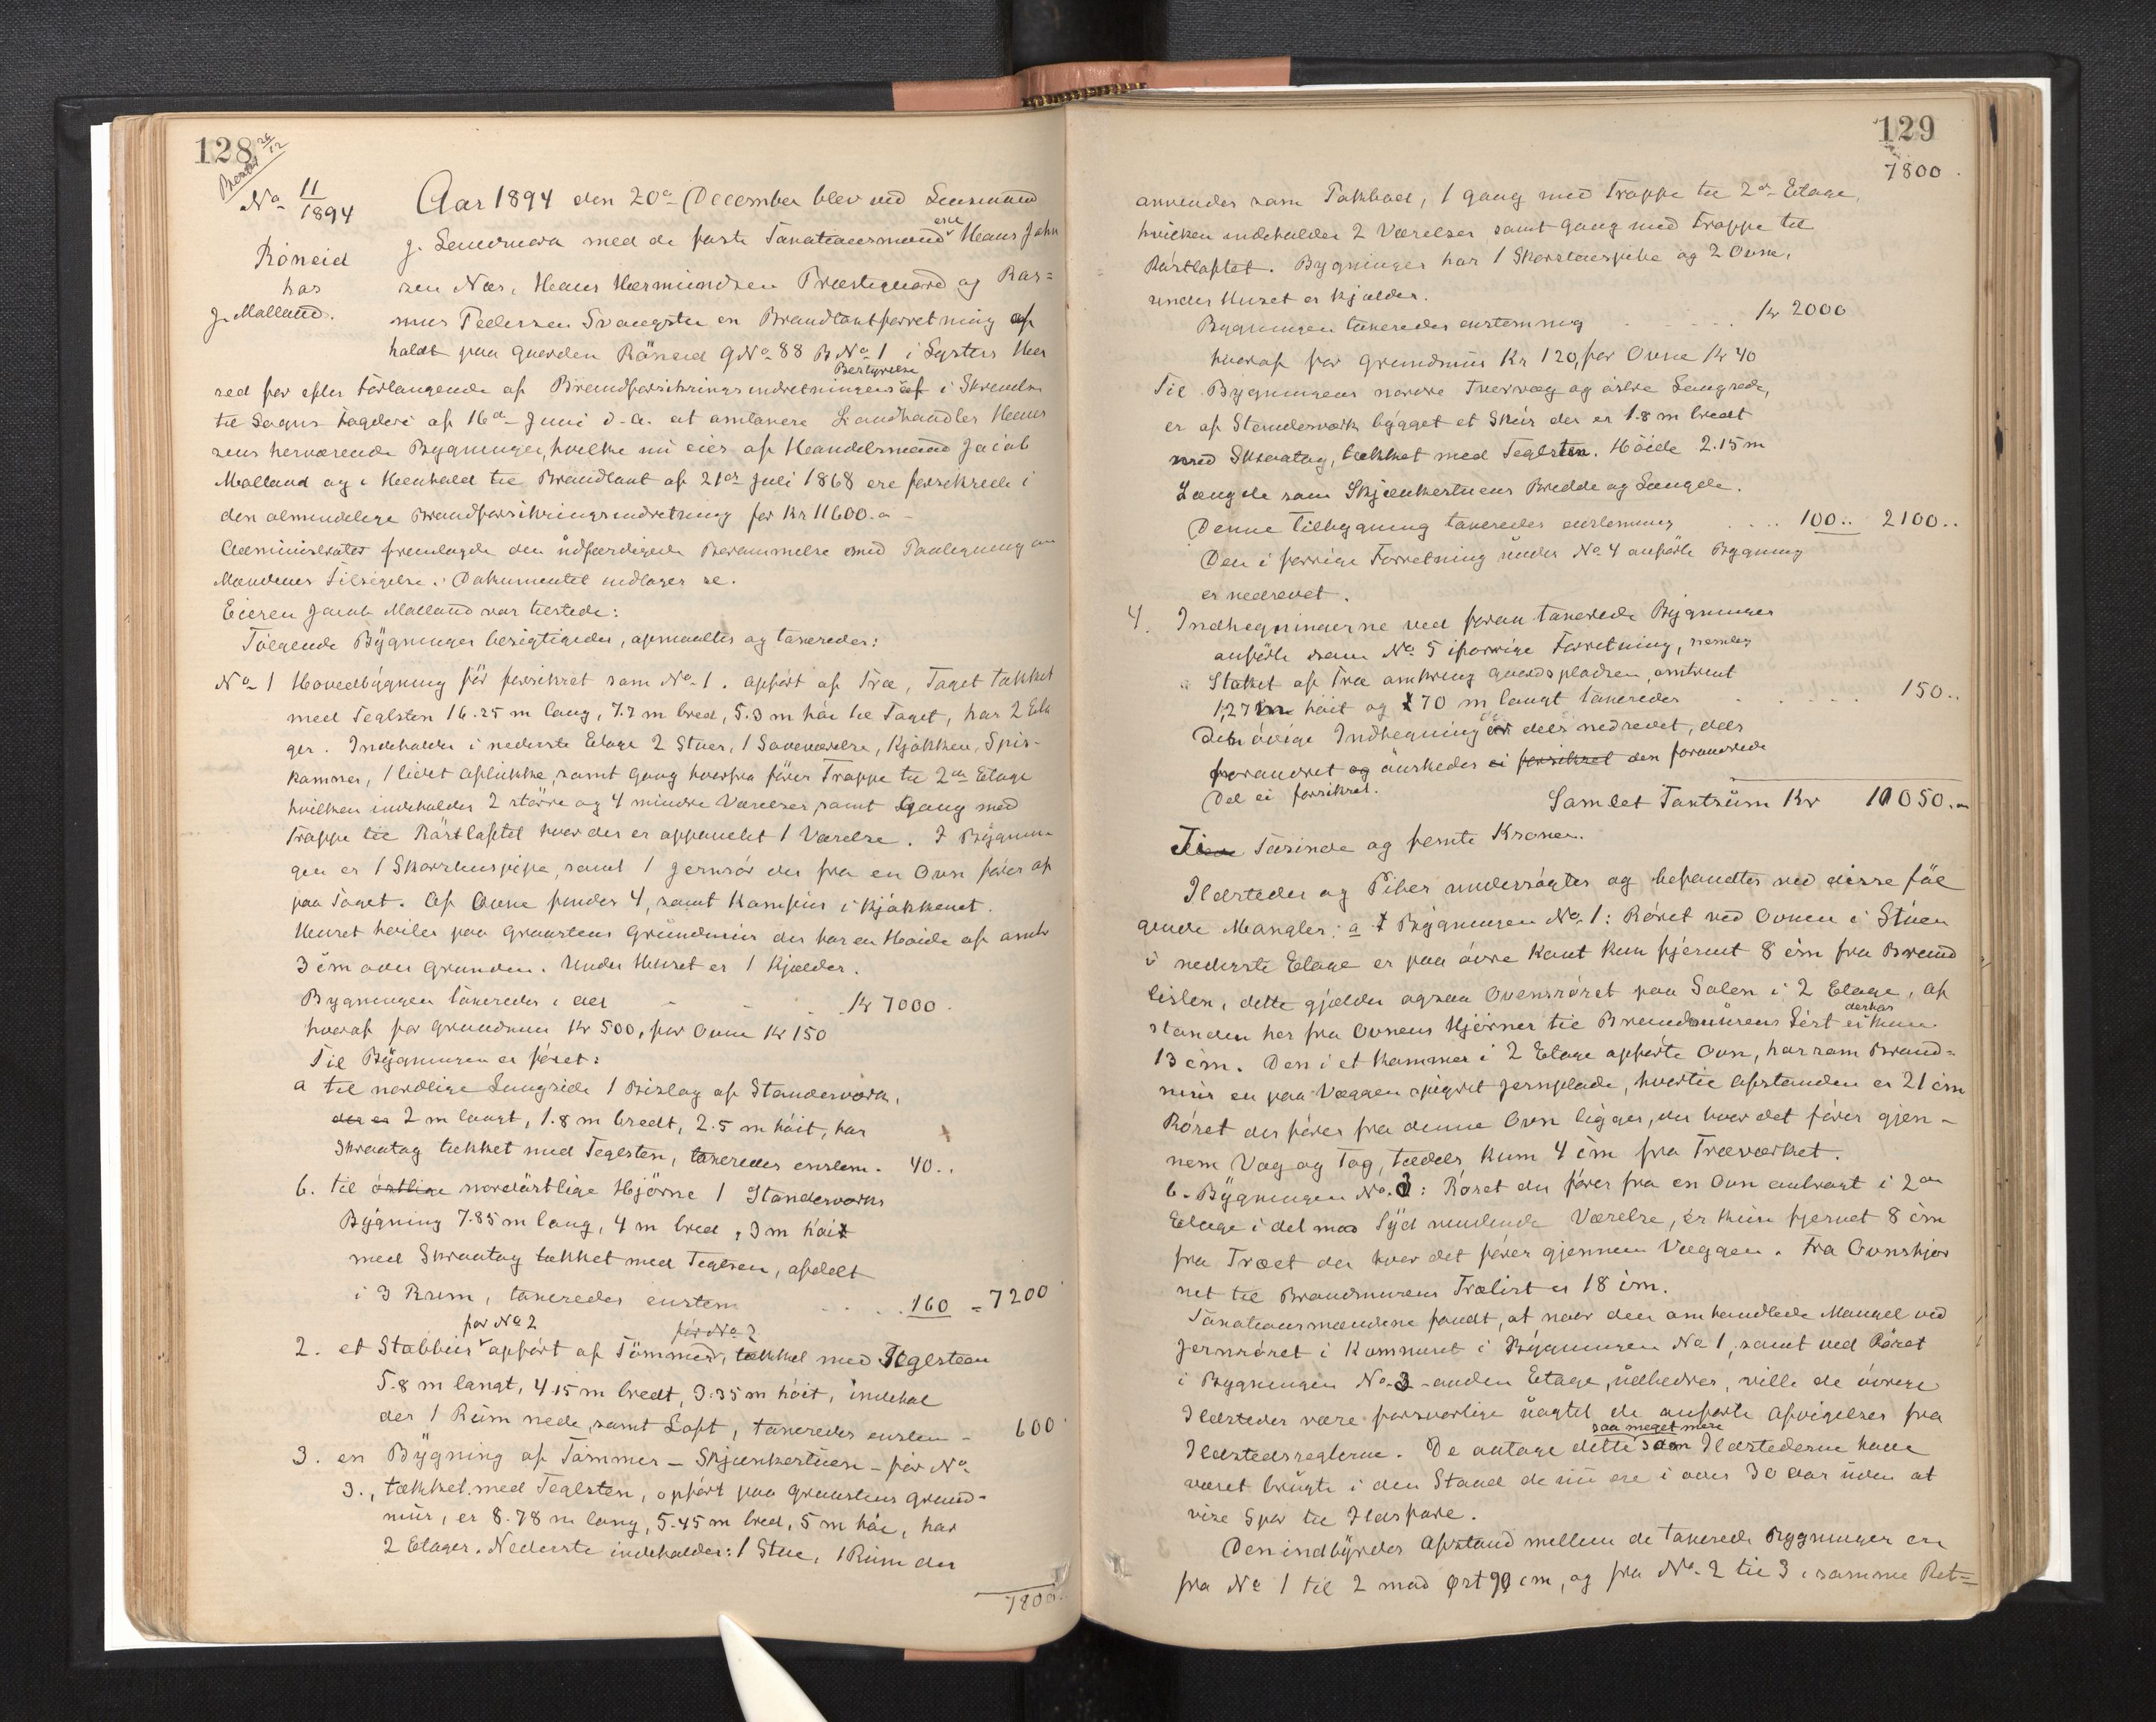 128
Besørget 28/12
No 11/1894
Röneid
hos
J. Malland.
Aar 1894 den 20de December blev ved Lensmand
J. Lemsmora med de faste Taxationsmænd Hans John
sen Næs, Hans Hermundsen Præstegaard og Ras=
mus Pedersen Svangstu en Brandtaxtforretning af
holdt paa Gaarden Röneid GNo 88 BNo 1 i Lysters Her
red for efter Forlangende af Brandforsikringsindretningens Bestyrelse i Skrivelse
til Sogns Fogderi af 16de Juni d. A. at omtaxere Landhandler Hans
sens herværende Bygninger, hvilke nu eies af Handelsmand Jacob
Malland og i Henhold til Brandtaxt af 21de Juli 1868 ere forsikrede i
den almindelige Brandforsikringsindretning for Kr 11600.-
Administrator fremlagde den udfærdigede Berammelse med Paategning om
Mændenes Tilsigelse. Dokumentet indtages se.
Eieren Jacob Malland var tilstede:
Følgende Bygninger besigtigedes, opmaaltes og taxeredes:
No 1 Hovedbygning för forsikret som No 1. opfört af Træ, Taget tækket
med Teglsten 16.25 m lang, 7.7 m bred, 5.3 m höi til Taget, har 2 Eta
ger. Indeholder i nederste Etage 2 Stuer, 1 Soveværelse, Kjökken, Spis-
kammer, 1 lidet Aflukke, samt Gang hvorfra förer Trappe til 2den Etage
hvilken indeholder 2 större og 4 mindre Værelser samt Gang med
Trappe til Röstloftet hvor der er oppanelet 1 Værelse. I Bygnin
gen er 1 Skorstenspipe, samt 1 Jernrör der fra en Ovn förer op
paa Taget. Af Ovne findes 4, samt Komfur i Kjökkenet.
Huset hviler paa Graastens Grundmur der har en Höide af omtr
3 cm over Grunden. Under Huset er 1 Kjælder.
Bygningen taxeredes i det - - . Kr 7000.
hvoraf for Grundmur Kr 500, for Ovne Kr 150
Til Bygningen er föiet:
a til nordlige Langside 1 Bislag af Standerværk,
der er 2 m langt, 1.8 m bredt, 2.5 m höit, har
Skraatag tækket med Teglsten, taxeredes enstem. 40..
b. til östlige nordöstlige Hjörne 1 Standerværks
Bygning 7.85 m lang, 4 m bred, 3 m höit
med Skraatag tækket med Teglsen, afdelt
i 3 Rum, taxeredes enstem . . . . 160 = 7200
2. et Stabbur for No 2 opfört af Tömmer, for No 2 tækket med Teglsteen
5.8 m langt, 4.15 m bredt, 3.35 m höit, indehol
der 1 Rum nede, samt Loft, taxeredes enstem - 600
3. en Bygning af Tömmer - Skjænkestuen - för No
3., tækket med Teglsten, opfört paa Graastens Grund-
mur, er 8.78 m lang, 5.45 m bred, 5 m höi, har
2 Etager. Nederste indeholder: 1 Stue, 1 Rum der
7800.
129
7800.
anvendes som Pakbod, 1 Gang med Trappe til 2den Etage,
hvilken indeholder 2 Værelser samt Gang med Trappe til
Röstloftet. Bygningen har 1 Skorstenspibe og 2 Ovne,
under Huset er Kjælder.
Bygningen taxeredes enstemmig . . . . . Kr 2000
hvoraf for Grundmur Kr 120, for Ovne Kr 40
Til Bygningens nordre Tværvæg og östre Langside,
er af Standerværk bygget et Skur der er 1.8 m bredt
med Skraatag, tækket med Teglsten. Höide 2.15 m
Længde som Skjænkestuens Bredde og Længde.
Denne Tilbygning taxeredes enstemmig . . . . 100.. 2100..
Den i forrige Forretning under No 4 anførte Bygning
er nedrevet.
4. Indhegningerne ved foran taxerede Bygninger
anförte som No 5 i forrige Forretning, nemlig
Staket af Træ omkring Gaardspladsen, omtrent
1,27 m höit og 70 m langt taxeredes . . . . . 150..
Den övrige Indhegning er dels nedrevet, dels
forandret og önskedes ei forsikret den forandrede
Del ei forsikret.
Samlet Taxtsum Kr 10050.-
Tien Ti Tusinde og femti Kroner.
Ildsteder og Piber undersögtes og befandtes ved disse föl
gende Mangler: a I Bygningen No 1: Röret ved Ovnen i Stuen
i nederste Etage er paa övre Kant kun fjernet 8 cm fra Brand
listen, dette gjælder ogsaa Ovnsröret paa Salen i 2 Etage, Af
standen her fra Ovnens Hjörner til Brandmurens List er kun
13 cm. Den i et Kammer i 2 Etage opførte Ovn, har som Brand=
mur en paa Væggen spigret Jernplade, hvortil Afstanden er 21 cm
Röret der förer fra denne Ovn ligger, der hvor det förer gjen-
nem Væg og Tag, tildels kum 4 cm fra Træværket.
b. Bygningen No. 3: Röret der förer fra en Ovn anbragt i 2den
Etage i det mod Syd vendende Værelse, er kun fjernet 8 cm
fra Træet der hvor det förer gjennem Væggen. Fra Ovnshjör
net til Brandmurens Trælist er 18 cm.
Taxationsmændene fandt, at naar den omhandlede Mangel ved
Jernröret i Kammeret i Bygningen No 1, samt ved Röret
i Bygningen No 3 anden Etage, udbedres, ville de övrige
Ildsteder være forsvarlige uagtet de anførte Afvigelser fra
Ildstedsreglerne. De antage dette saa meget mere som Ildstederne have
været brugte i den Stand de nu ere i over 30 Aar uden at
vise Spor til Ildsfare.
Den indbyrdes Afstand mellem de taxerede Bygninger er
fra No 1 til 2 mod Øst 90 cm, og fra No. 2 til 3 i samme Ret=